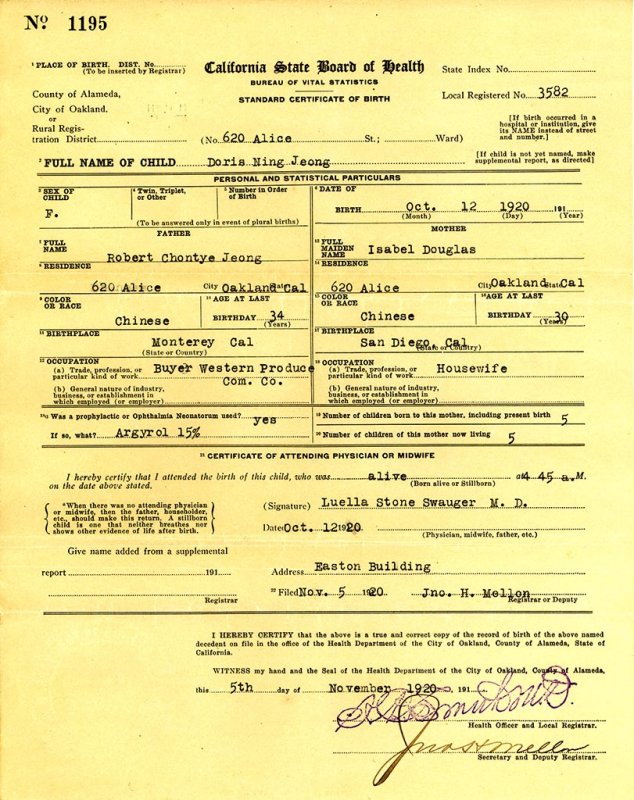 No. 1195
¹ PLACE OF BIRTH. DIST. No.
(To be inserted by Registrar)
County of Alameda,
City of Oakland.
or
Rural Regis-
tration District
California State Board of Health
BUREAU OF VITAL STATISTICS
STANDARD CERTIFICATE OF BIRTH
State Index No.
Local Registered No. 3582
(No. 620 Alice St.; Ward)
[If birth occurred in a
hospital or institution, give
its NAME instead of street
and number.]
² FULL NAME OF CHILD Doris Ning Jeong
[If child is not yet named, make
supplemental report, as directed]
PERSONAL AND STATISTICAL PARTICULARS
³ SEX OF
CHILD
F.
⁴ Twin, Triplet,
or Other
⁵ Number in Order
of Birth
(To be answered only in event of plural births)
⁶ DATE OF
BIRTH Oct. 12 1920 191
(Month) (Day) (Year)
FATHER
⁷ FULL
NAME
Robert Chontye Jeong
⁸ RESIDENCE
620 Alice City Oakland State Cal
⁹ COLOR
OR RACE
Chinese
¹⁰ AGE AT LAST
BIRTHDAY 34
(Years)
¹¹ BIRTHPLACE
Monterey Cal
(State or Country)
¹² OCCUPATION
(a) Trade, profession, or
particular kind of work Buyer Western Produce
Com. Co.
(b) General nature of industry,
business, or establishment in
which employed (or employer)
MOTHER
¹³ FULL
MAIDEN
NAME
Isabel Douglas
¹⁴ RESIDENCE
620 Alice City Oakland State Cal
¹⁵ COLOR
OR RACE
Chinese
¹⁶ AGE AT LAST
BIRTHDAY 30
(Years)
¹⁷ BIRTHPLACE
San Diego, Cal
(State or Country)
¹⁸ OCCUPATION
(a) Trade, profession, or
particular kind of work Housewife
(b) General nature of industry,
business, or establishment in
which employed (or employer)
Was a prophylactic or Ophthalmia Neonatorum used? yes
If so, what? Argyrol 15%
¹⁹ Number of children born to this mother, including present birth 5
²⁰ Number of children of this mother now living 5
²¹ CERTIFICATE OF ATTENDING PHYSICIAN OR MIDWIFE
I hereby certify that I attended the birth of this child, who was alive at 4 45 a.M.
on the date above stated. (Born alive or Stillborn)
*When there was no attending physician
or midwife, then the father, householder,
etc., should make this return. A stillborn
child is one that neither breathes nor
shows other evidence of life after birth.
(Signature) Luella Stone Swauger M. D.
Date Oct. 12 1920
(Physician, midwife, father, etc.)
Give name added from a supplemental
report 191
Registrar
Address Easton Building
²² Filed Nov. 5 1920 Jno. H. Mellon
Registrar or Deputy
I HEREBY CERTIFY that the above is a true and correct copy of the record of birth of the above named
decedent on file in the office of the Health Department of the City of Oakland, County of Alameda, State of
California.
WITNESS my hand and the Seal of the Health Department of the City of Oakland, County of Alameda,
this 5th day of November 1920 191
Health Officer and Local Registrar.
Jno H Mellon
Secretary and Deputy Registrar.